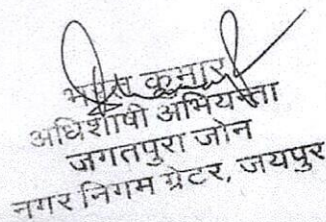 कुमार
अधिशाषी अभियन्ता
जगतपुरा जोन
नगर निगम ग्रेटर, जयपुर